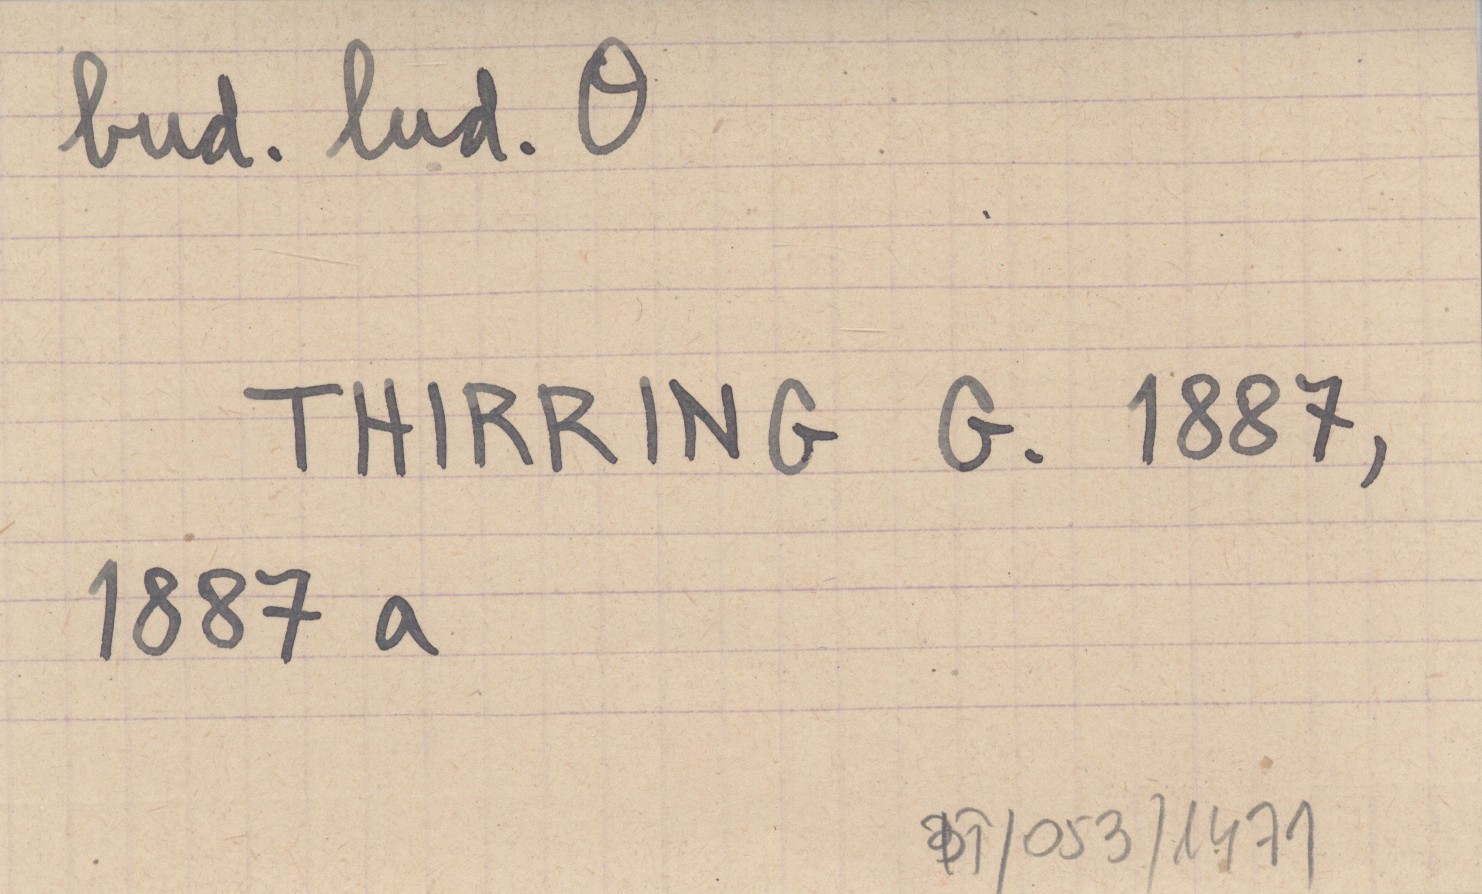 bud. lud. O
THIRRING G. 1887,
1887 a
/053/1471